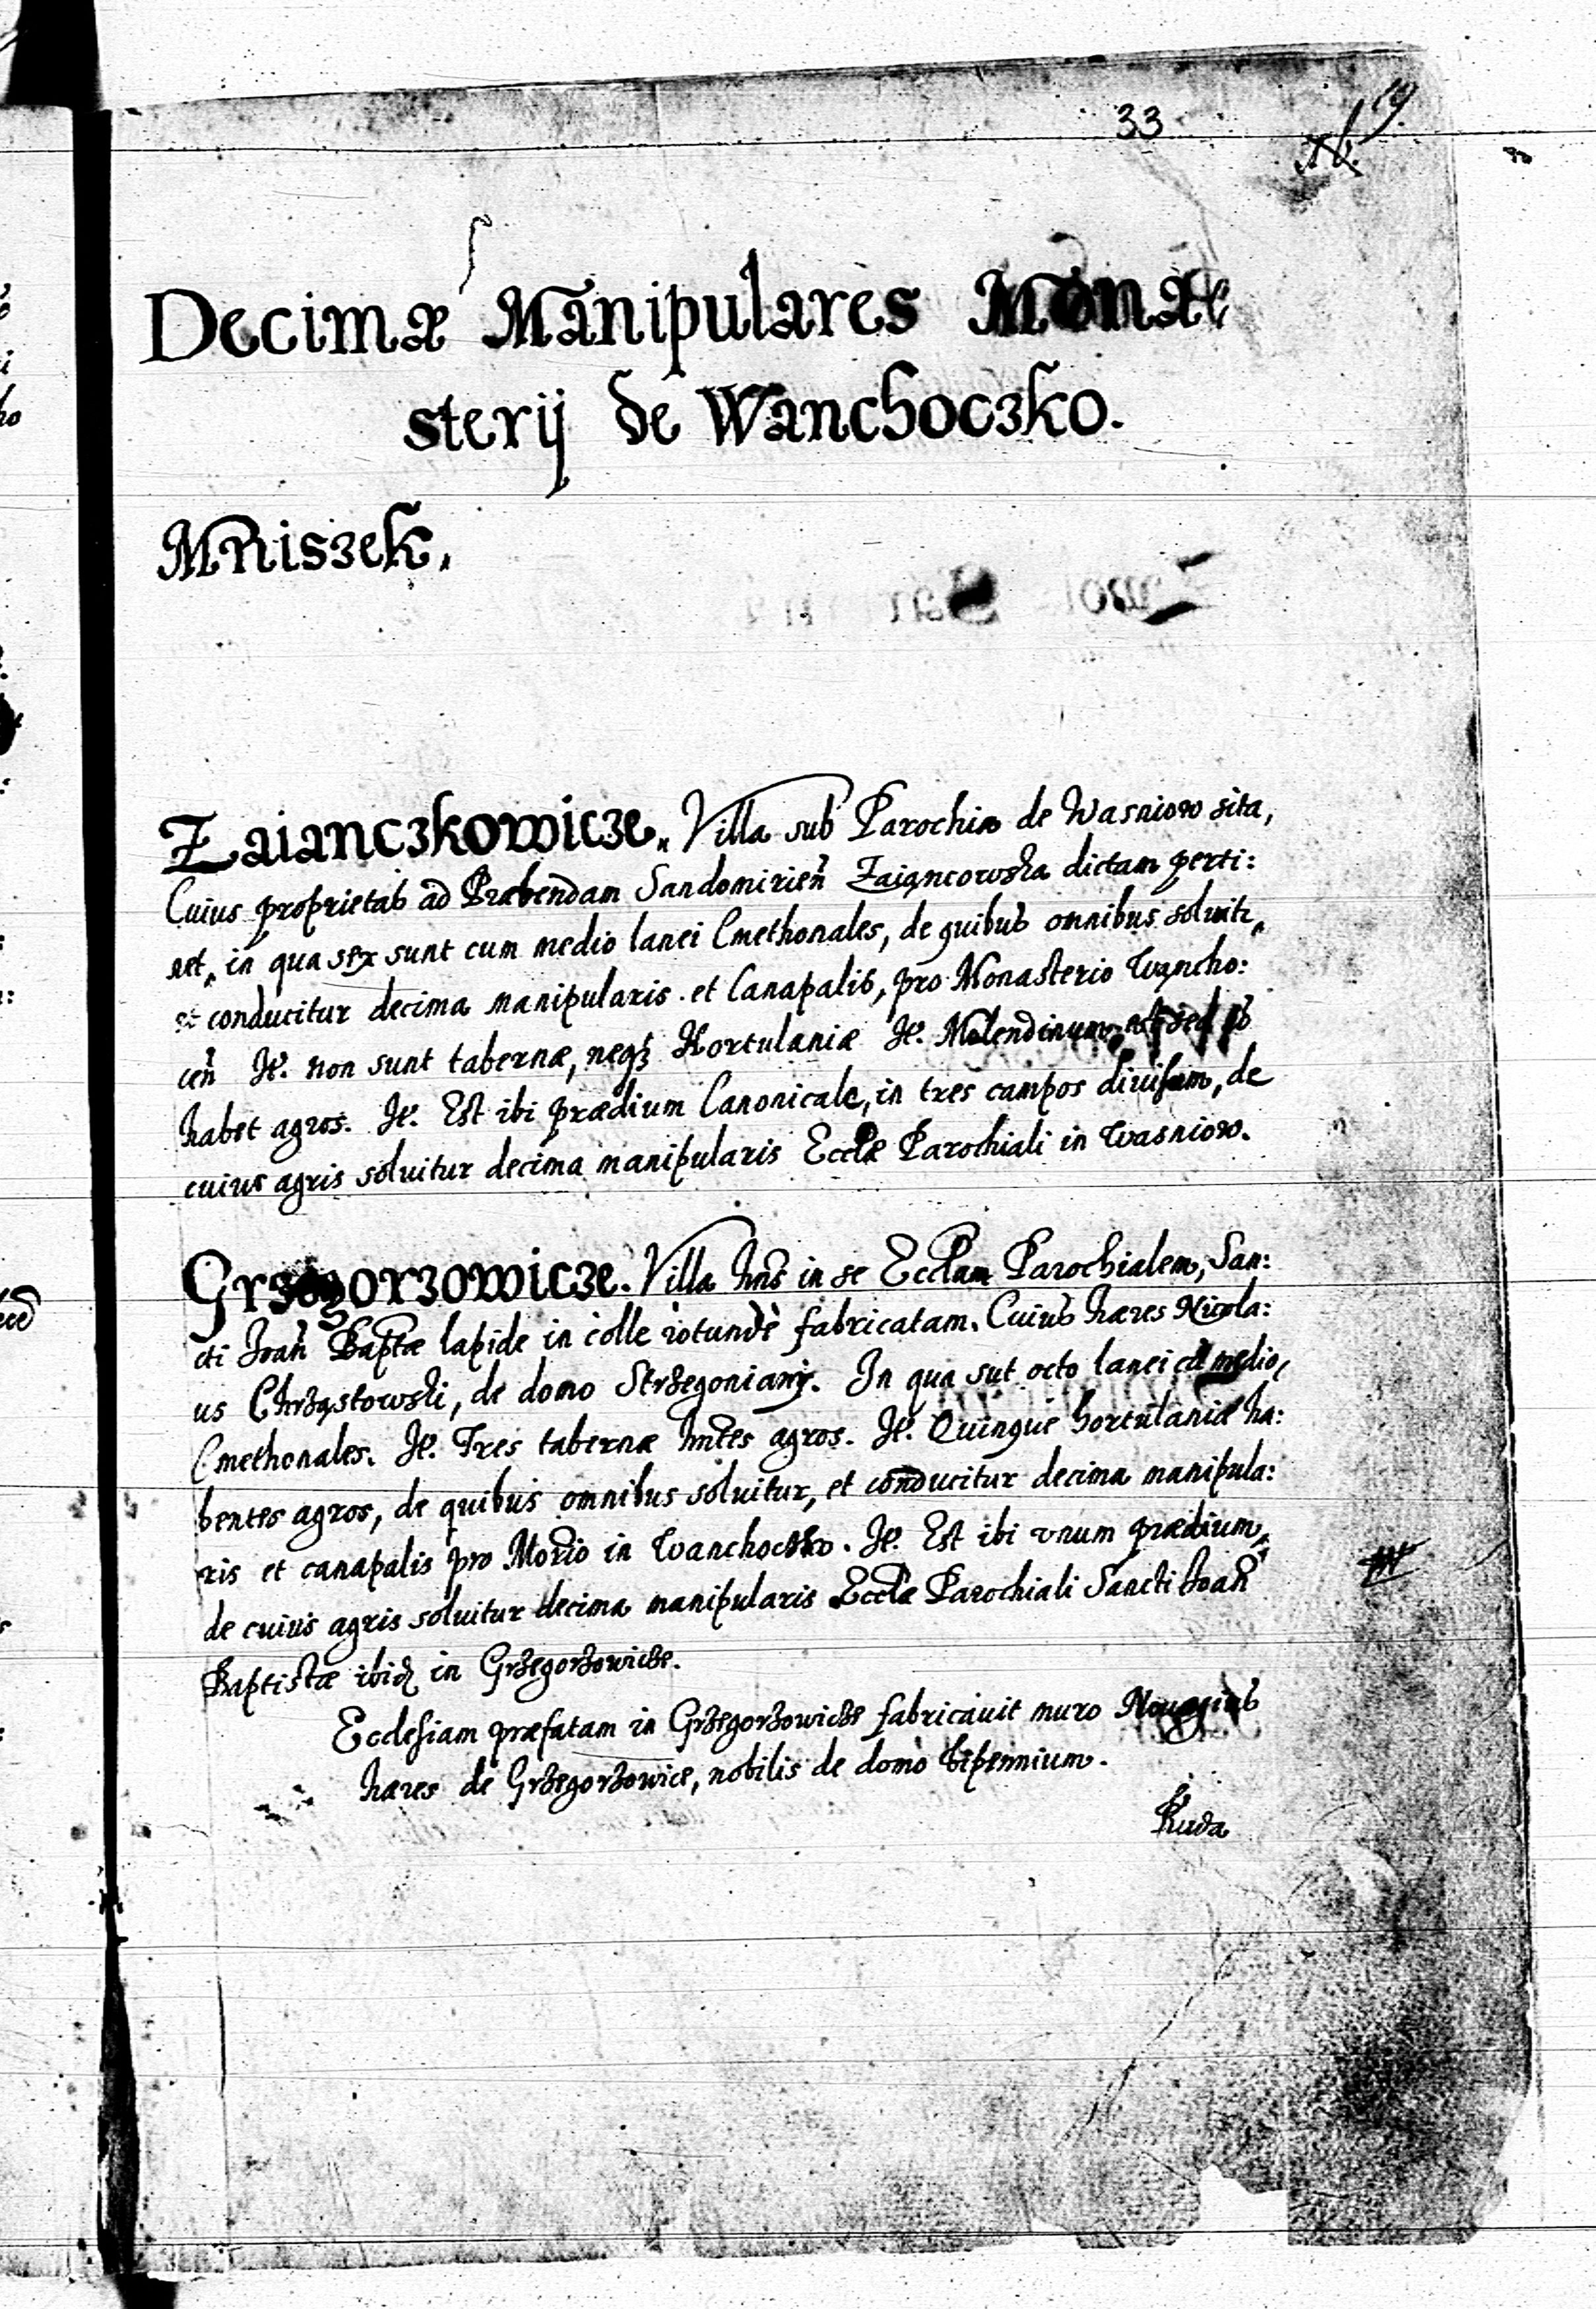 33
19
Decimæ Manipulares Mona
sterij de Wanchoczko.
Mniszek.
Zaianczkowicze. Villa sub Parochia de Wasniow sita,
Cuius proprietas ad Præbendam Sandomirien̄ Zaiąncowska dictam perti:
net, in qua sex sunt cum medio lanei Cmethonales, de quibus omnibus soluitr,
et conducitur decima manipularis et Canapalis, pro Monasterio Wącho:
cen̄ It. non sunt tabernæ, neqꝫ Hortulaniæ It. Molendinum
habet agros. It. Est ibi prædium Canonicale, in tres campos diuisum, de
cuius agris soluitur decima manipularis Eccłæ Parochiali in Wasniow.
Grzegorzowicze. Villa hn̄s in se Eccłam Parochialem, San:
cti Joan̄ Baptæ lapide in colle rotunde fabricatam. Cuius hæres Nicola:
us Chrząstowski, de domo Strzegoniarij. In qua sut octo lanei cū medio,
Cmethonales. It. Tres tabernæ hn̄tes agros. It. Quinque hortulaniæ ha:
bentes agros, de quibus omnibus soluitur, et conducitur decima manipula:
ris et canapalis pro Mon̄rio in Wanchoczko. It. Est ibi vnum prædium,
de cuius agris soluitur decima manipularis Eccłæ Parochiali Sancti Joan̄
Baptistæ ibid in Grzegorzowicze.
Ecclesiam præfatam in Grzegorzowicze fabricauit muro Nouogius
hæres de Grzegorzowice, nobilis de domo bipennium.
Ruda